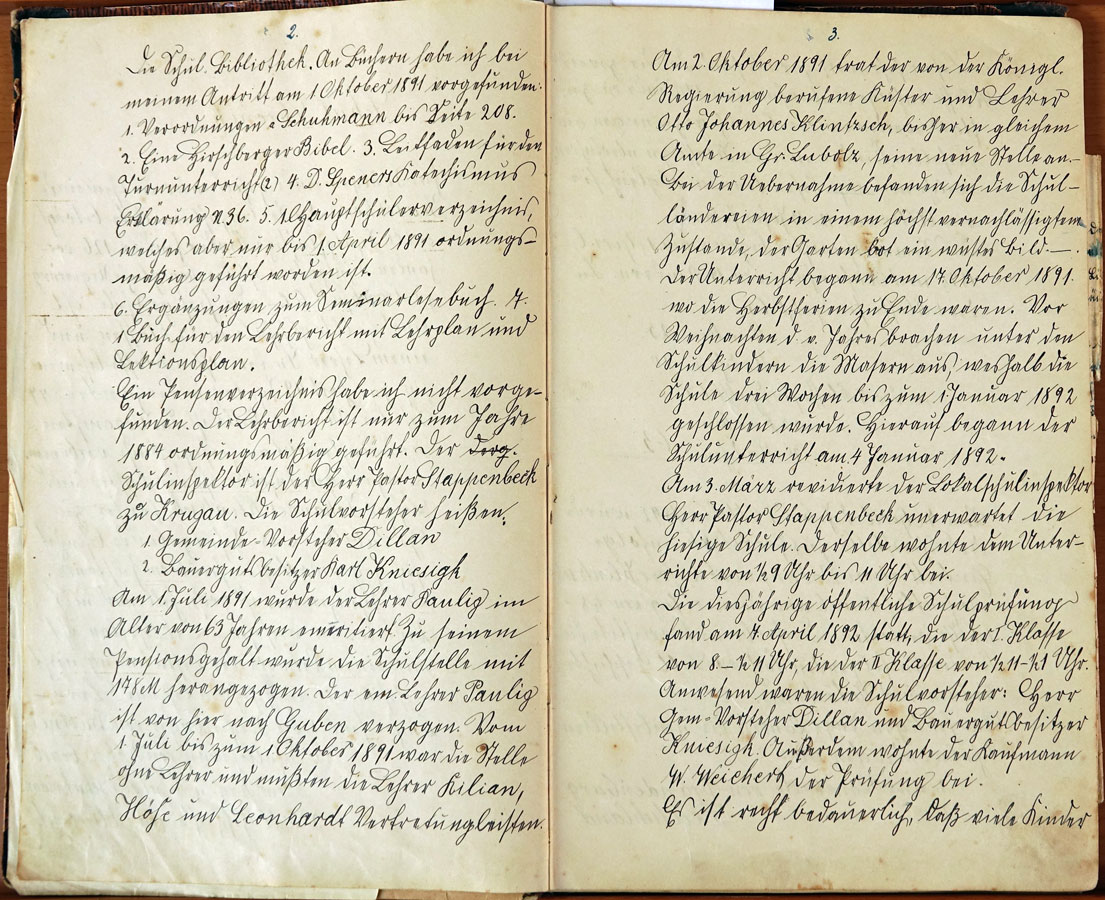 2.
Die Schul-Bibliothek. An Büchern habe ich bei
meinem Antritt am 1 Oktober 1891 vorgefunden:
1. Verordnungen v. Schuhmann bis Seite 208.
2. Eine Hirschberger Bibel. 3. Leitfaden für den
Turnunterricht(2) 4. D. Speners Katechismus
Erklärung N 36. 5. 1 Hauptschülerverzeichnis,
welches aber nur bis 1. April 1891 ordnungs-
mäßig geführt worden ist.
6. Ergänzungen zum Seminarlesebuch. 7.
1 Buch für den Lehrbericht mit Lehrplan und
Lektionsplan.
Ein Pensenverzeichnis habe ich nicht vorge-
funden. Der Lehrbericht ist nur zum Jahre
1884 ordnungsmäßig geführt. Der derg.
Schulinspektor ist der Herr Pastor Stappenbeck
zu Krugau. Die Schulvorsteher heißen:
1. Gemeinde-Vorsteher Dillan
2. Bauergutsbesitzer Karl Kniesigk
Am 1. Juli 1891 wurde der Lehrer Paulig im
Alter von 63 Jahren emeritiert. Zu seinem
Pensionsgehalt wurde die Schulstelle mit
178 M herangezogen. Der em. Lehrer Paulig
ist von hier nach Guben verzogen. Vom
1. Juli bis zum 1 Oktober 1891 war die Stelle
ohne Lehrer und mußten die Lehrer Kilian,
Höhse und Leonhardt Vertretung leisten.
3.
Am 2. Oktober 1891 trat der von der Königl.
Regierung berufene Küster und Lehrer
Otto Johannes Klintzsch, bisher in gleichem
Amte in Gr. Lubolz, seine neue Stelle an.-
Bei der Uebernahme befanden sich die Schul-
ländereien in einem höchst vernachlässigtem
Zustande, der Garten bot ein wüstes Bild.-
Der Unterricht begann am 17. Oktober 1891.
wo die Herbstferien zu Ende waren. Vor
Weihnachten d. v. Jahres brachen unter den
Schulkindern die Masern aus, weshalb die
Schule drei Wochen bis zum 1. Januar 1892
geschlossen wurde. Hierauf begann der
Schulunterricht am 4 Januar 1892.
Am 3. März revidierte der Lokalschulinspektor
Herr Pastor Stappenbeck unerwartet die
hiesige Schule. Derselbe wohnte dem Unter-
richte von ½9 Uhr bis 11 Uhr bei.
Die diesjährige öffentliche Schulprüfung
fand am 7. April 1892 statt, die der I. Klasse
von 8-½11 Uhr, die der II Klasse von ½11-½1 Uhr.
Anwesend waren die Schulvorsteher: Herr
Gem.-Vorsteher Dillan und Bauergutsbesitzer
Kniesigk. Außerdem wohnte der Kaufmann
W. Weichert der Prüfung bei.
Es ist recht bedauerlich, daß viele Kinder